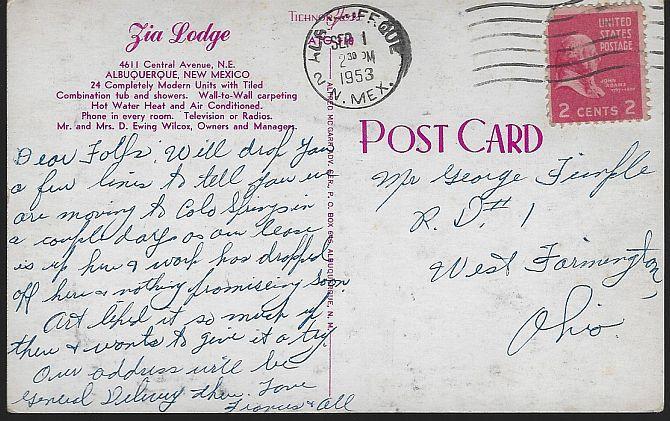 Zia Lodge
4611 Central Avenue, N.E.
ALBUQUERQUE, NEW MEXICO
24 Completely Modern Units with Tiled
Combination tub and showers. Wall-to-Wall carpeting
Hot Water Heat and Air Conditioned.
Phone in every room. Television or Radios.
Mr. and Mrs. D. Ewing Wilcox, Owners and Managers.
Dear Folks: Will drop you
a few lines to tell you we
are moving to Colo Springs in
a couple days as our lease
is up here & work has dropped
off here & nothing promiseing soon.
Art liked it so much up
there & wants to give it a try
Our address will be
General Delivery there. Love
Frances & All
SEP 1
2 30 PM
1953
N. MEX.
UNITED
STATES
POSTAGE
JOHN
ADAMS
2 CENTS 2
POST CARD
Mr George
R. D. # 1
West Farmington,
Ohio.